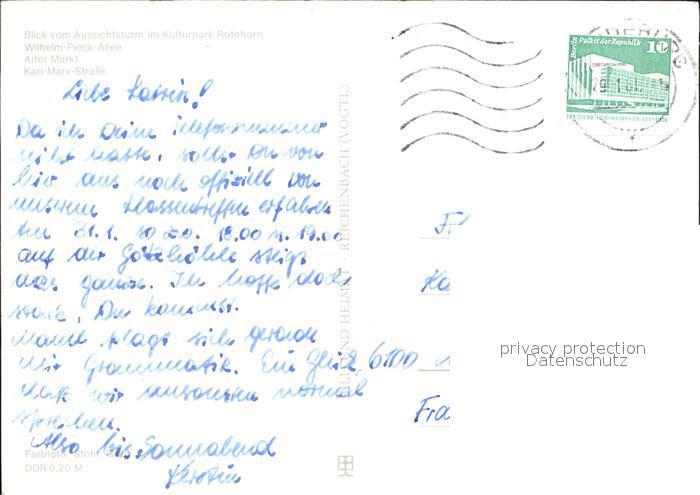 Blick vom Aussichtsturm im Kulturpark Rotehorn
Wilhelm-Pieck-Allee
Alter Markt
Karl-Marx-Straße
Liebe Katrin!
Da ich Deine Telefonnummer
nicht hatte, sollst Du von
hier aus noch offiziell von
unserem Klassentreffen erfahren
Am 31.1. so zw. 18.00 u. 19.00
auf der Götzhöhle steigt
das ganze. Ich hoffe doch
stark, Du kommst.
Mandi plagt sich gerade
mit Grammatik. Ein Glück,
daß wir ansonsten normal
sprechen.
Also bis Sonnabend
Kerstin
Farbfoto: Stöhr,
DDR 0,20 M
BILD UND HEIMAT · REICHENBACH (VOGTL)
Berlin Palast der Republik
10
DEUTSCHE DEMOKRATISCHE REPUBLIK
Fr
Ka
6100
Fra
privacy protection
Datenschutz